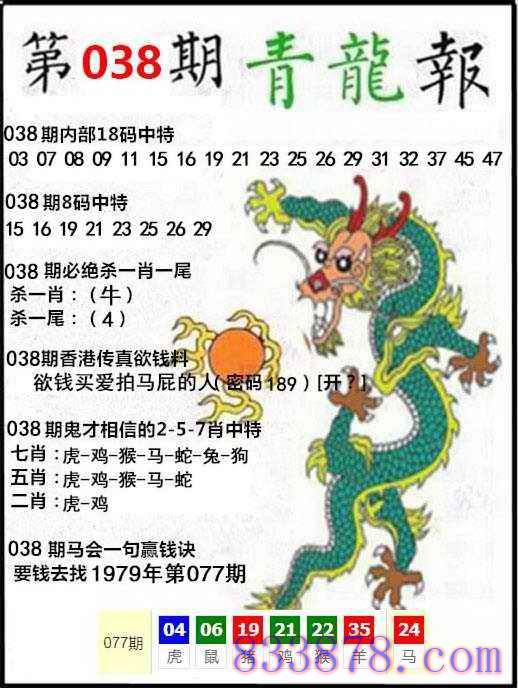 第038期 青龍報
038期内部18码中特
03 07 08 09 11 15 16 19 21 23 25 26 29 31 32 37 45 47
038期8码中特
15 16 19 21 23 25 26 29
038 期必绝杀一肖一尾
杀一肖：（牛）
杀一尾：（4）
038期香港传真欲钱料
欲钱买爱拍马屁的人(密码189)[开?]
038期鬼才相信的2-5-7肖中特
七肖：虎-鸡-猴-马-蛇-兔-狗
五肖：虎-鸡-猴-马-蛇
二肖：虎-鸡
038 期马会一句赢钱诀
要钱去找1979年第077期
077期 04 06 19 21 22 35 24
虎 鼠 猪 鸡 猴 羊 马
833878.com